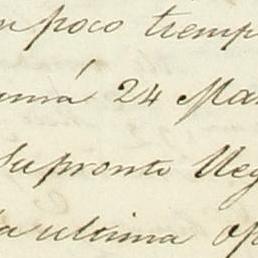 n poco tiemp
umá 24 Mar
Supronto Reg
la ultima op